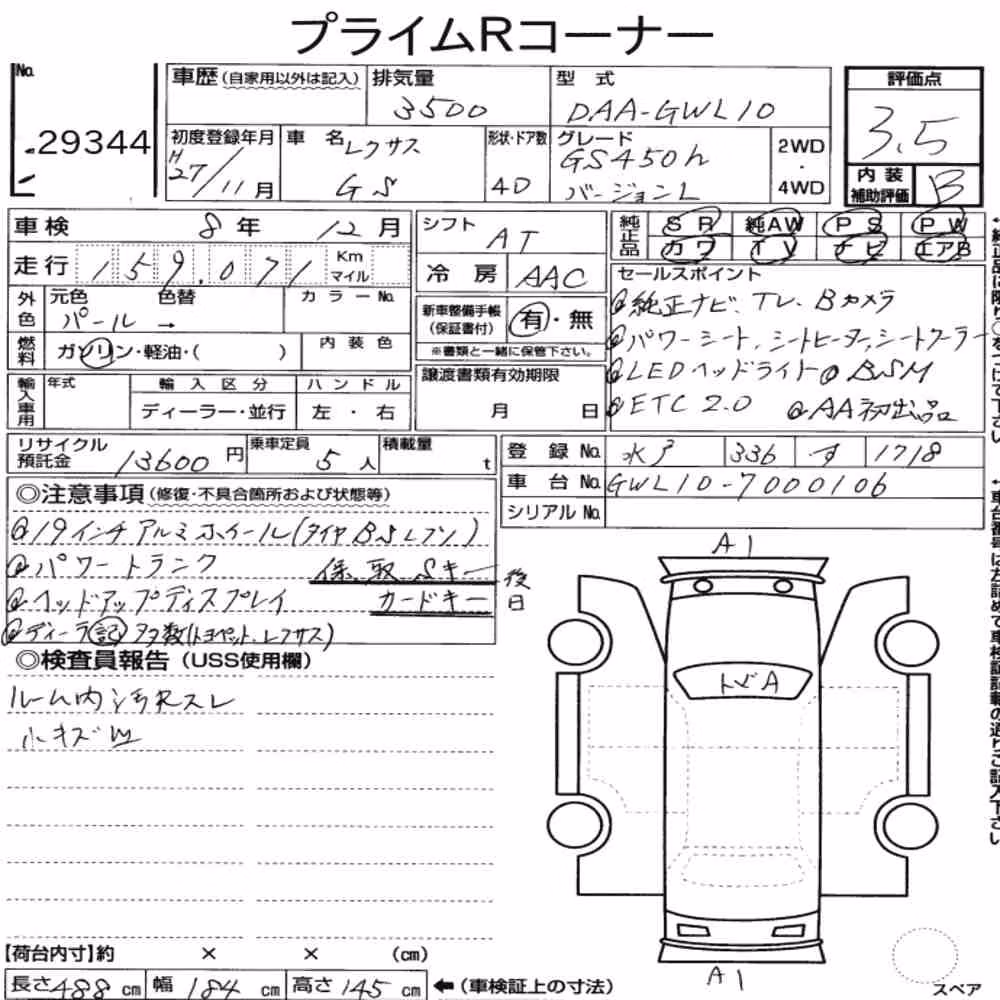 プライムRコーナー
No.
29344
車歴(自家用以外は記入)
排気量
3500
型 式
DAA-GWL10
評価点
3.5
初度登録年月
H27/11月
車 名
レクサス
GS
形状・ドア数
4D
グレード
GS450h
バージョンL
2WD
・
4WD
内 装
補助評価
B
車検 8年 12月
走行 159.071 Km
マイル
シフト
AT
冷 房 AAC
純正品
SR 純AW PS PW
カワ TV ナビ エアB
外色 元色 色替 カラーNo.
パール →
燃料 ガソリン・軽油・( ) 内 装 色
新車整備手帳
(保証書付)
有・無
※書類と一緒に保管下さい。
セールスポイント
@純正ナビ、TV、Bカメラ
@パワーシート,シートヒーター,シートクーラー
@LEDヘッドライト @BSM
@ETC2.0 @AA初出品
輸入車用 年式 輸入区分 ハンドル
ディーラー・並行 左・右
譲渡書類有効期限
月 日
リサイクル
預託金
13600円
乗車定員
5人
積載量
t
登 録 No. 水戸 336 す 1718
車 台 No. GWL10-7000106
シリアル No.
◎注意事項(修復・不具合箇所および状態等)
@19インチアルミホイール(タイヤBSレグノ)
@パワートランク
保 取 Sキー
後日
@ヘッドアップディスプレイ
カードキー
@ディーラ記タヨ数(トヨペット、レクサス)
◎検査員報告(USS使用欄)
ルーム内シミ汚レスレ
小キズW
A1
トビA
A1
スペア
【荷台内寸】約 × × (cm)
長さ488cm 幅184cm 高さ145cm ←(車検証上の寸法)
↑純正品に限り○をつけて下さい
↑車台番号は左詰めで車検証記載の通りご記入下さい